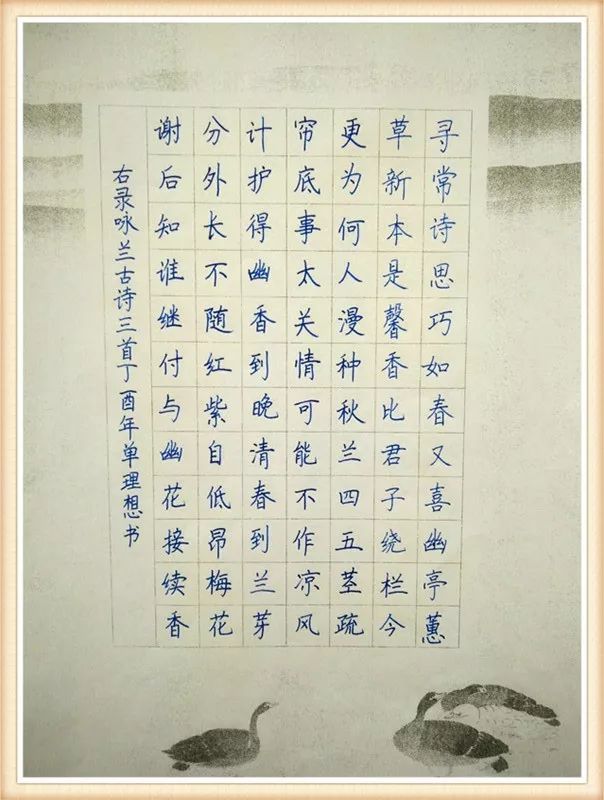 寻常诗思巧如春又喜幽亭蕙
草新本是馨香比君子绕栏今
更为何人漫种秋兰四五茎疏
帘底事太关情可能不作凉风
计护得幽香到晚清春到兰芽
分外长不随红紫自低昂梅花
谢后知谁继付与幽花接续香
右录咏兰古诗三首丁酉年单理想书